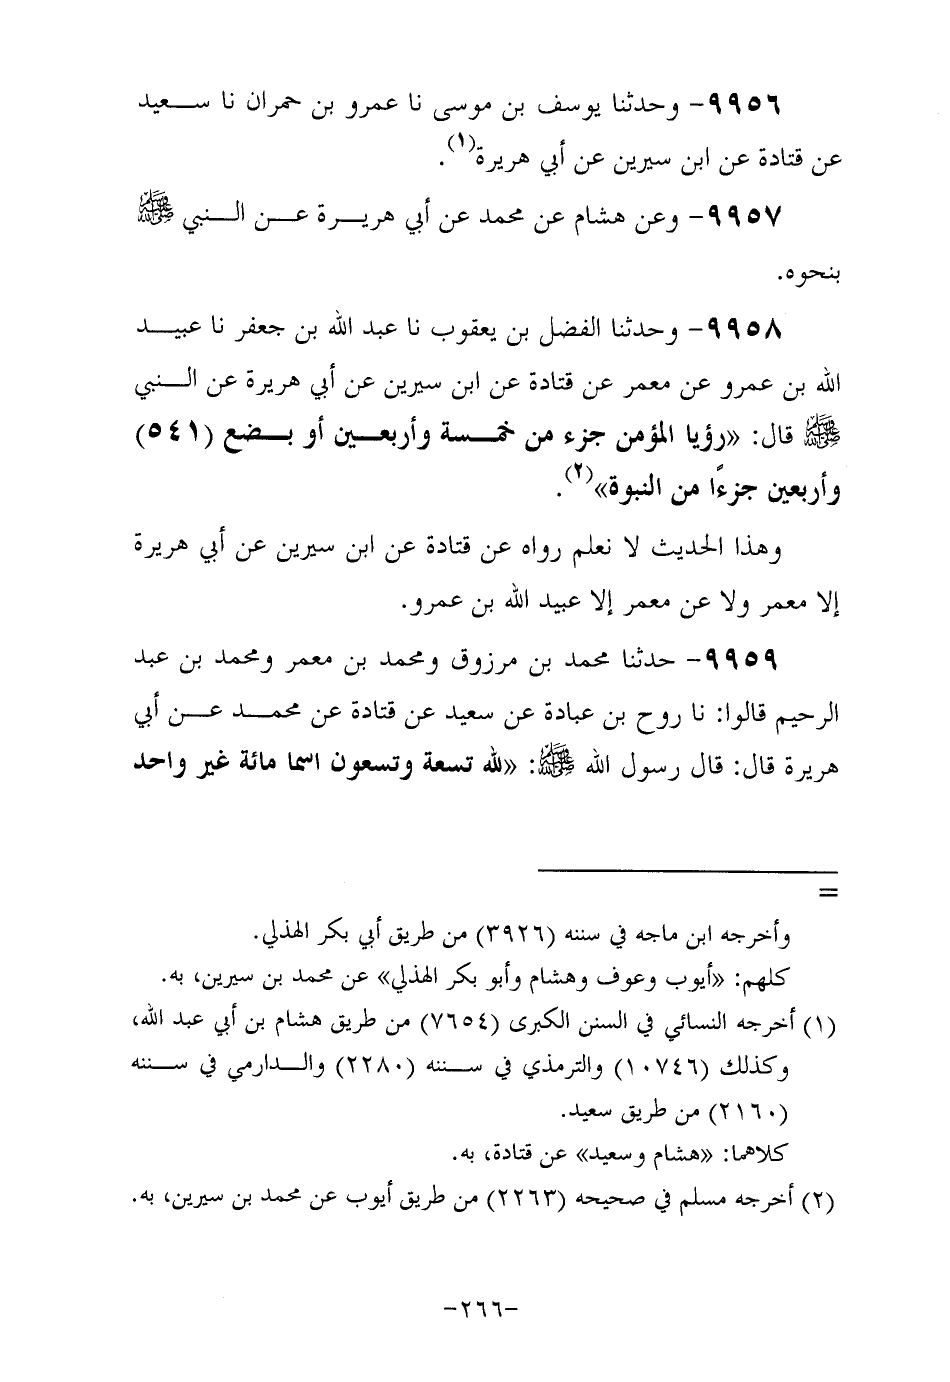 ٩٩٥٦- وحدثنا يوسف بن موسى نا عمرو بن حمران نا سعيد
عن قتادة عن ابن سيرين عن أبي هريرة(١).
٩٩٥٧- وعن هشام عن محمد عن أبي هريرة عن النبي ﷺ
بنحوه.
٩٩٥٨- وحدثنا الفضل بن يعقوب نا عبد الله بن جعفر نا عبيد
الله بن عمرو عن معمر عن قتادة عن ابن سيرين عن أبي هريرة عن النبي
ﷺ قال: «رؤيا المؤمن جزء من خمسة وأربعين أو بضع (٥٤١)
وأربعين جزءًا من النبوة»(٢).
وهذا الحديث لا نعلم رواه عن قتادة عن ابن سيرين عن أبي هريرة
إلا معمر ولا عن معمر إلا عبيد الله بن عمرو.
٩٩٥٩- حدثنا محمد بن مرزوق ومحمد بن معمر ومحمد بن عبد
الرحيم قالوا: نا روح بن عبادة عن سعيد عن قتادة عن محمد عن أبي
هريرة قال: قال رسول الله ﷺ: «لله تسعة وتسعون اسما مائة غير واحد
=
وأخرجه ابن ماجه في سننه (٣٩٢٦) من طريق أبي بكر الهذلي.
كلهم: «أيوب وعوف وهشام وأبو بكر الهذلي» عن محمد بن سيرين، به.
(١) أخرجه النسائي في السنن الكبرى (٧٦٥٤) من طريق هشام بن أبي عبد الله،
وكذلك (١٠٧٤٦) والترمذي في سننه (٢٢٨٠) والدارمي في سننه
(٢١٦٠) من طريق سعيد.
كلاهما: «هشام وسعيد» عن قتادة، به.
(٢) أخرجه مسلم في صحيحه (٢٢٦٣) من طريق أيوب عن محمد بن سيرين، به.
-٢٦٦-